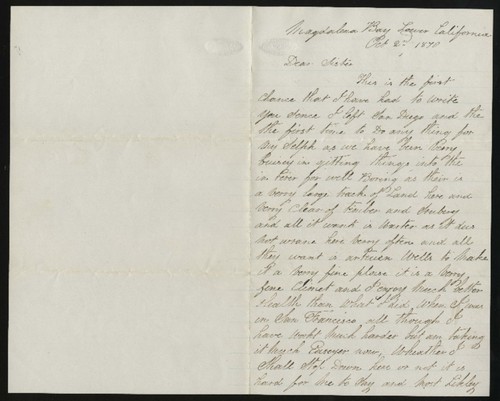 Magdalena Bay Lower California
Oct 2nd 1878
Dear Sister
This is the first
chance that I have had to write
you sence I left San Diego and the
the first time to do any thing for
my selph as we have bin very
buisey in gitting things into the
in terer for well Boring as their is
a verry large track of Land here and
verry Clear of Timber and
and all it want is Warter as it dus
not here verry often and all
they want is artesen Wells to Make
it a verry fine place it is a verry
fine Climet and I enjoy much better
Health than what I did when I was
in San Francisco all though I
have workt much harder but am taking
it much Easeyer now, Wheather I
Shall Stop down here or not it is
hard for me to Say and most likley